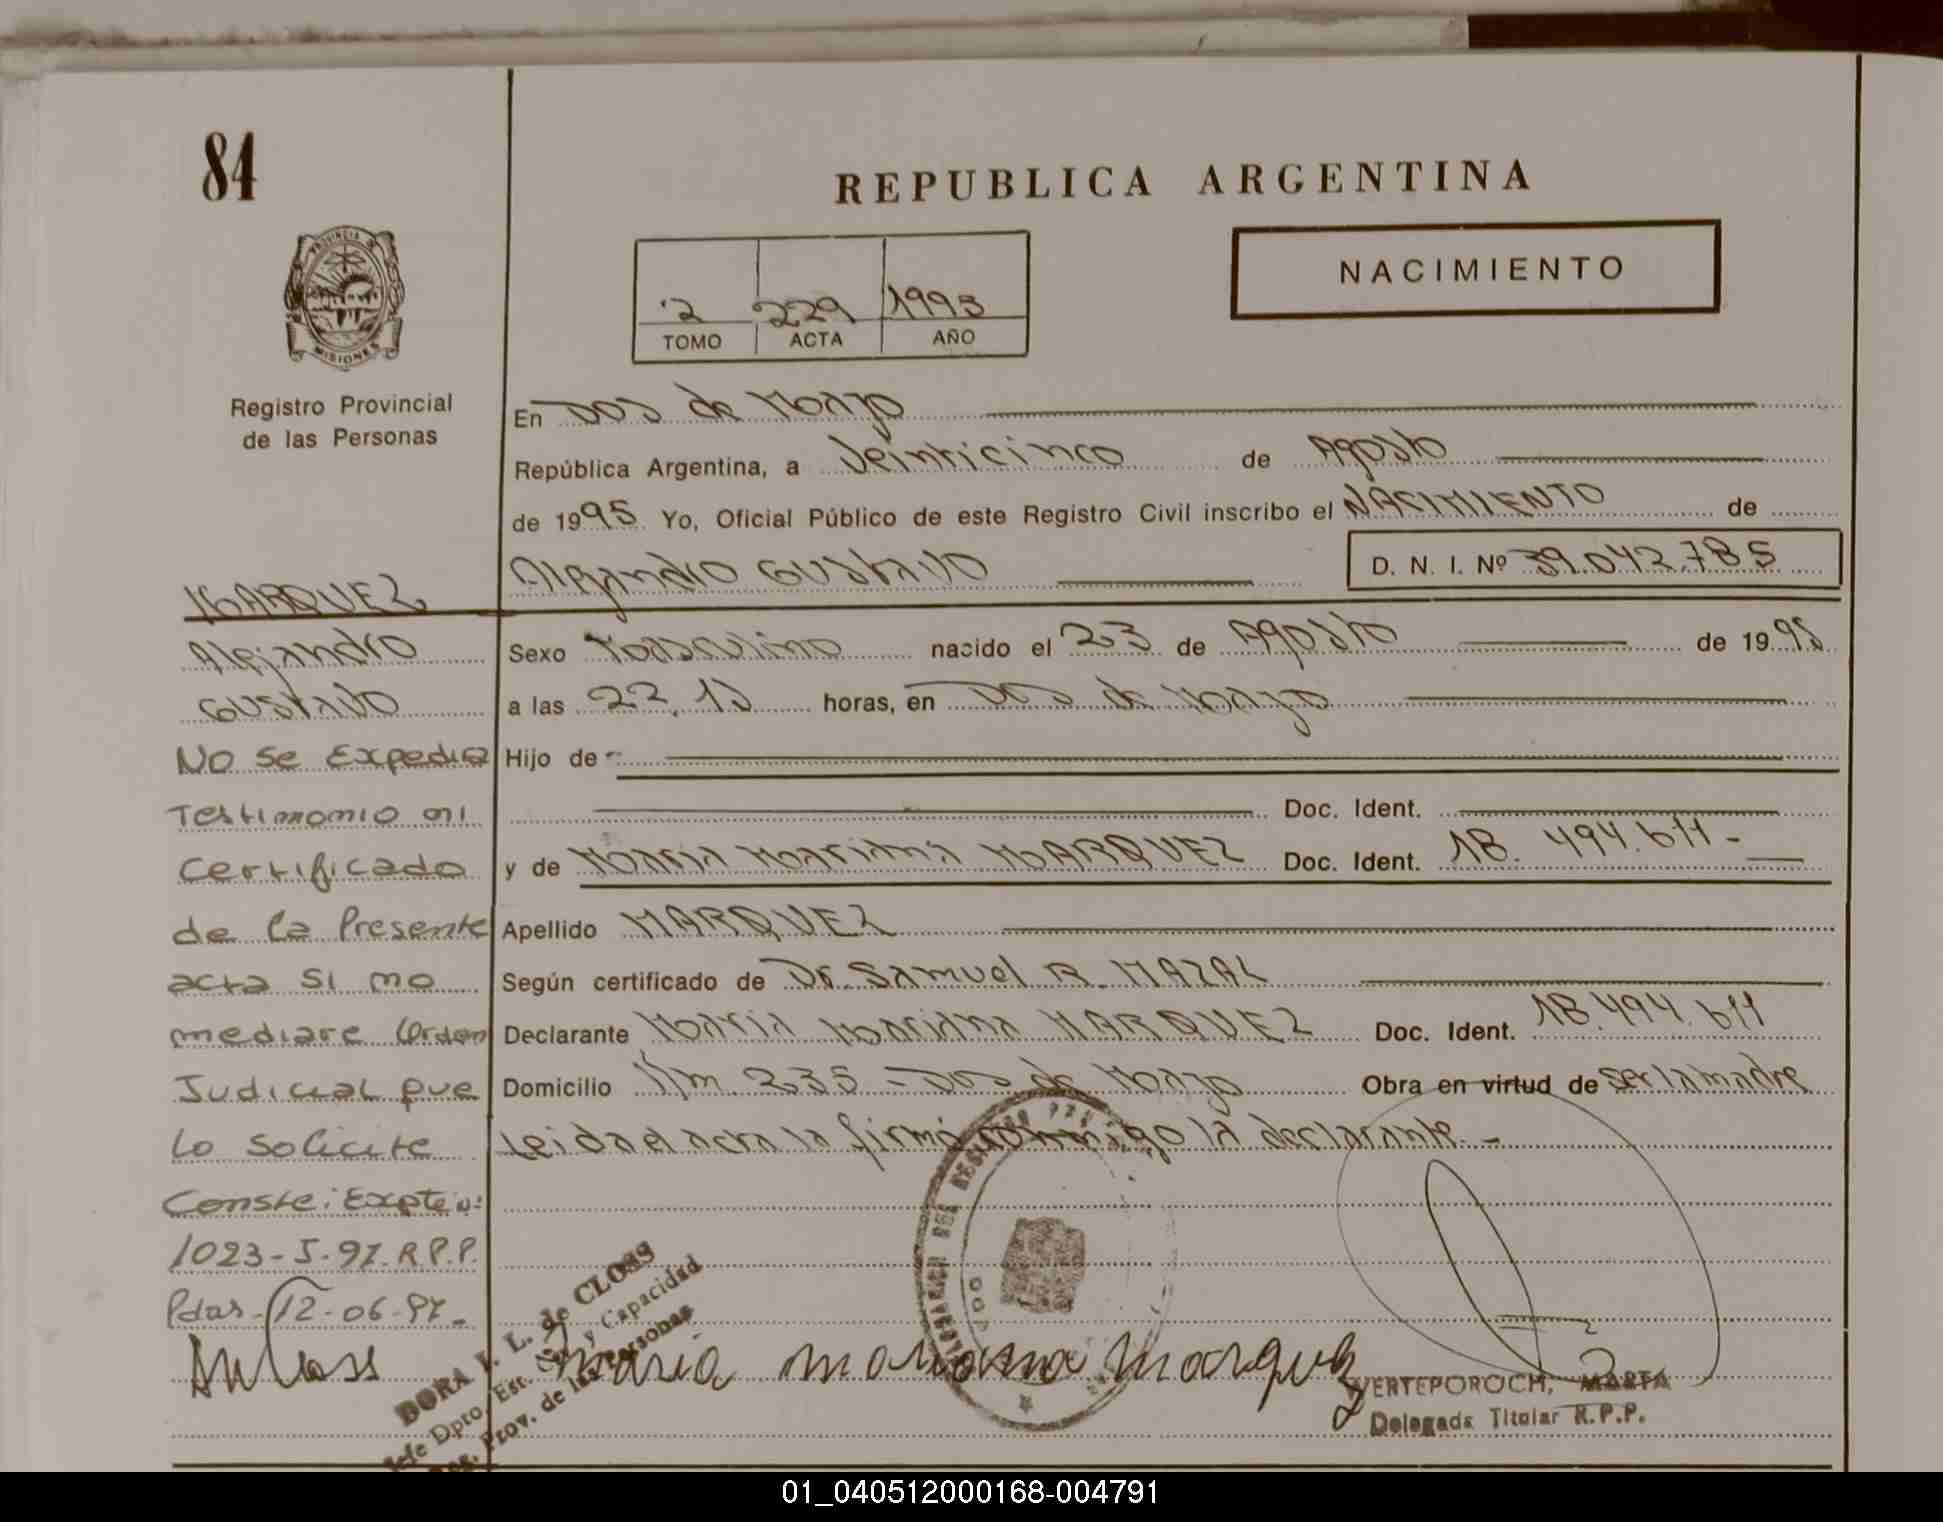 84
REPUBLICA ARGENTINA
PROVINCIA DE
MISIONES
Registro Provincial
de las Personas
NACIMIENTO
2 229 1995
TOMO ACTA AÑO
En Dos de Mayo
República Argentina, a Veinticinco de Agosto
de 1995 Yo, Oficial Público de este Registro Civil inscribo el NACIMIENTO de
Alejandro GUSTAVO
D. N. I. Nº 39.042.785
MARQUEZ
Alejandro
GUSTAVO
No se Expedira
Testimonio ni
Certificado
de la Presente
acta si no
mediare Orden
Judicial que
lo solicite
Conste: Expte n:
1023-J-97. R.P.P.
Pdas-12-06-97-
Sexo Masculino nacido el 23 de Agosto de 1995
a las 22,15 horas, en Dos de Mayo
Hijo de
Doc. Ident.
y de Maria Mariana MARQUEZ Doc. Ident. 18.494.611-
Apellido MARQUEZ
Según certificado de Dr. Samuel R. MAZAL
Declarante Maria Mariana MARQUEZ Doc. Ident. 18.494.611
Domicilio Km. 235 - Dos de Mayo Obra en virtud de ser la madre
Leida el acta la firmó conmigo la declarante.-
Maria Mariana Marquez
DORA I. L. de CLOSS
Jefe Dpto. Est. Civ. y Capacidad
Reg. Prov. de las Personas
WERTEPOROCH, MARTA
Delegada Titular R.P.P.
01_040512000168-004791